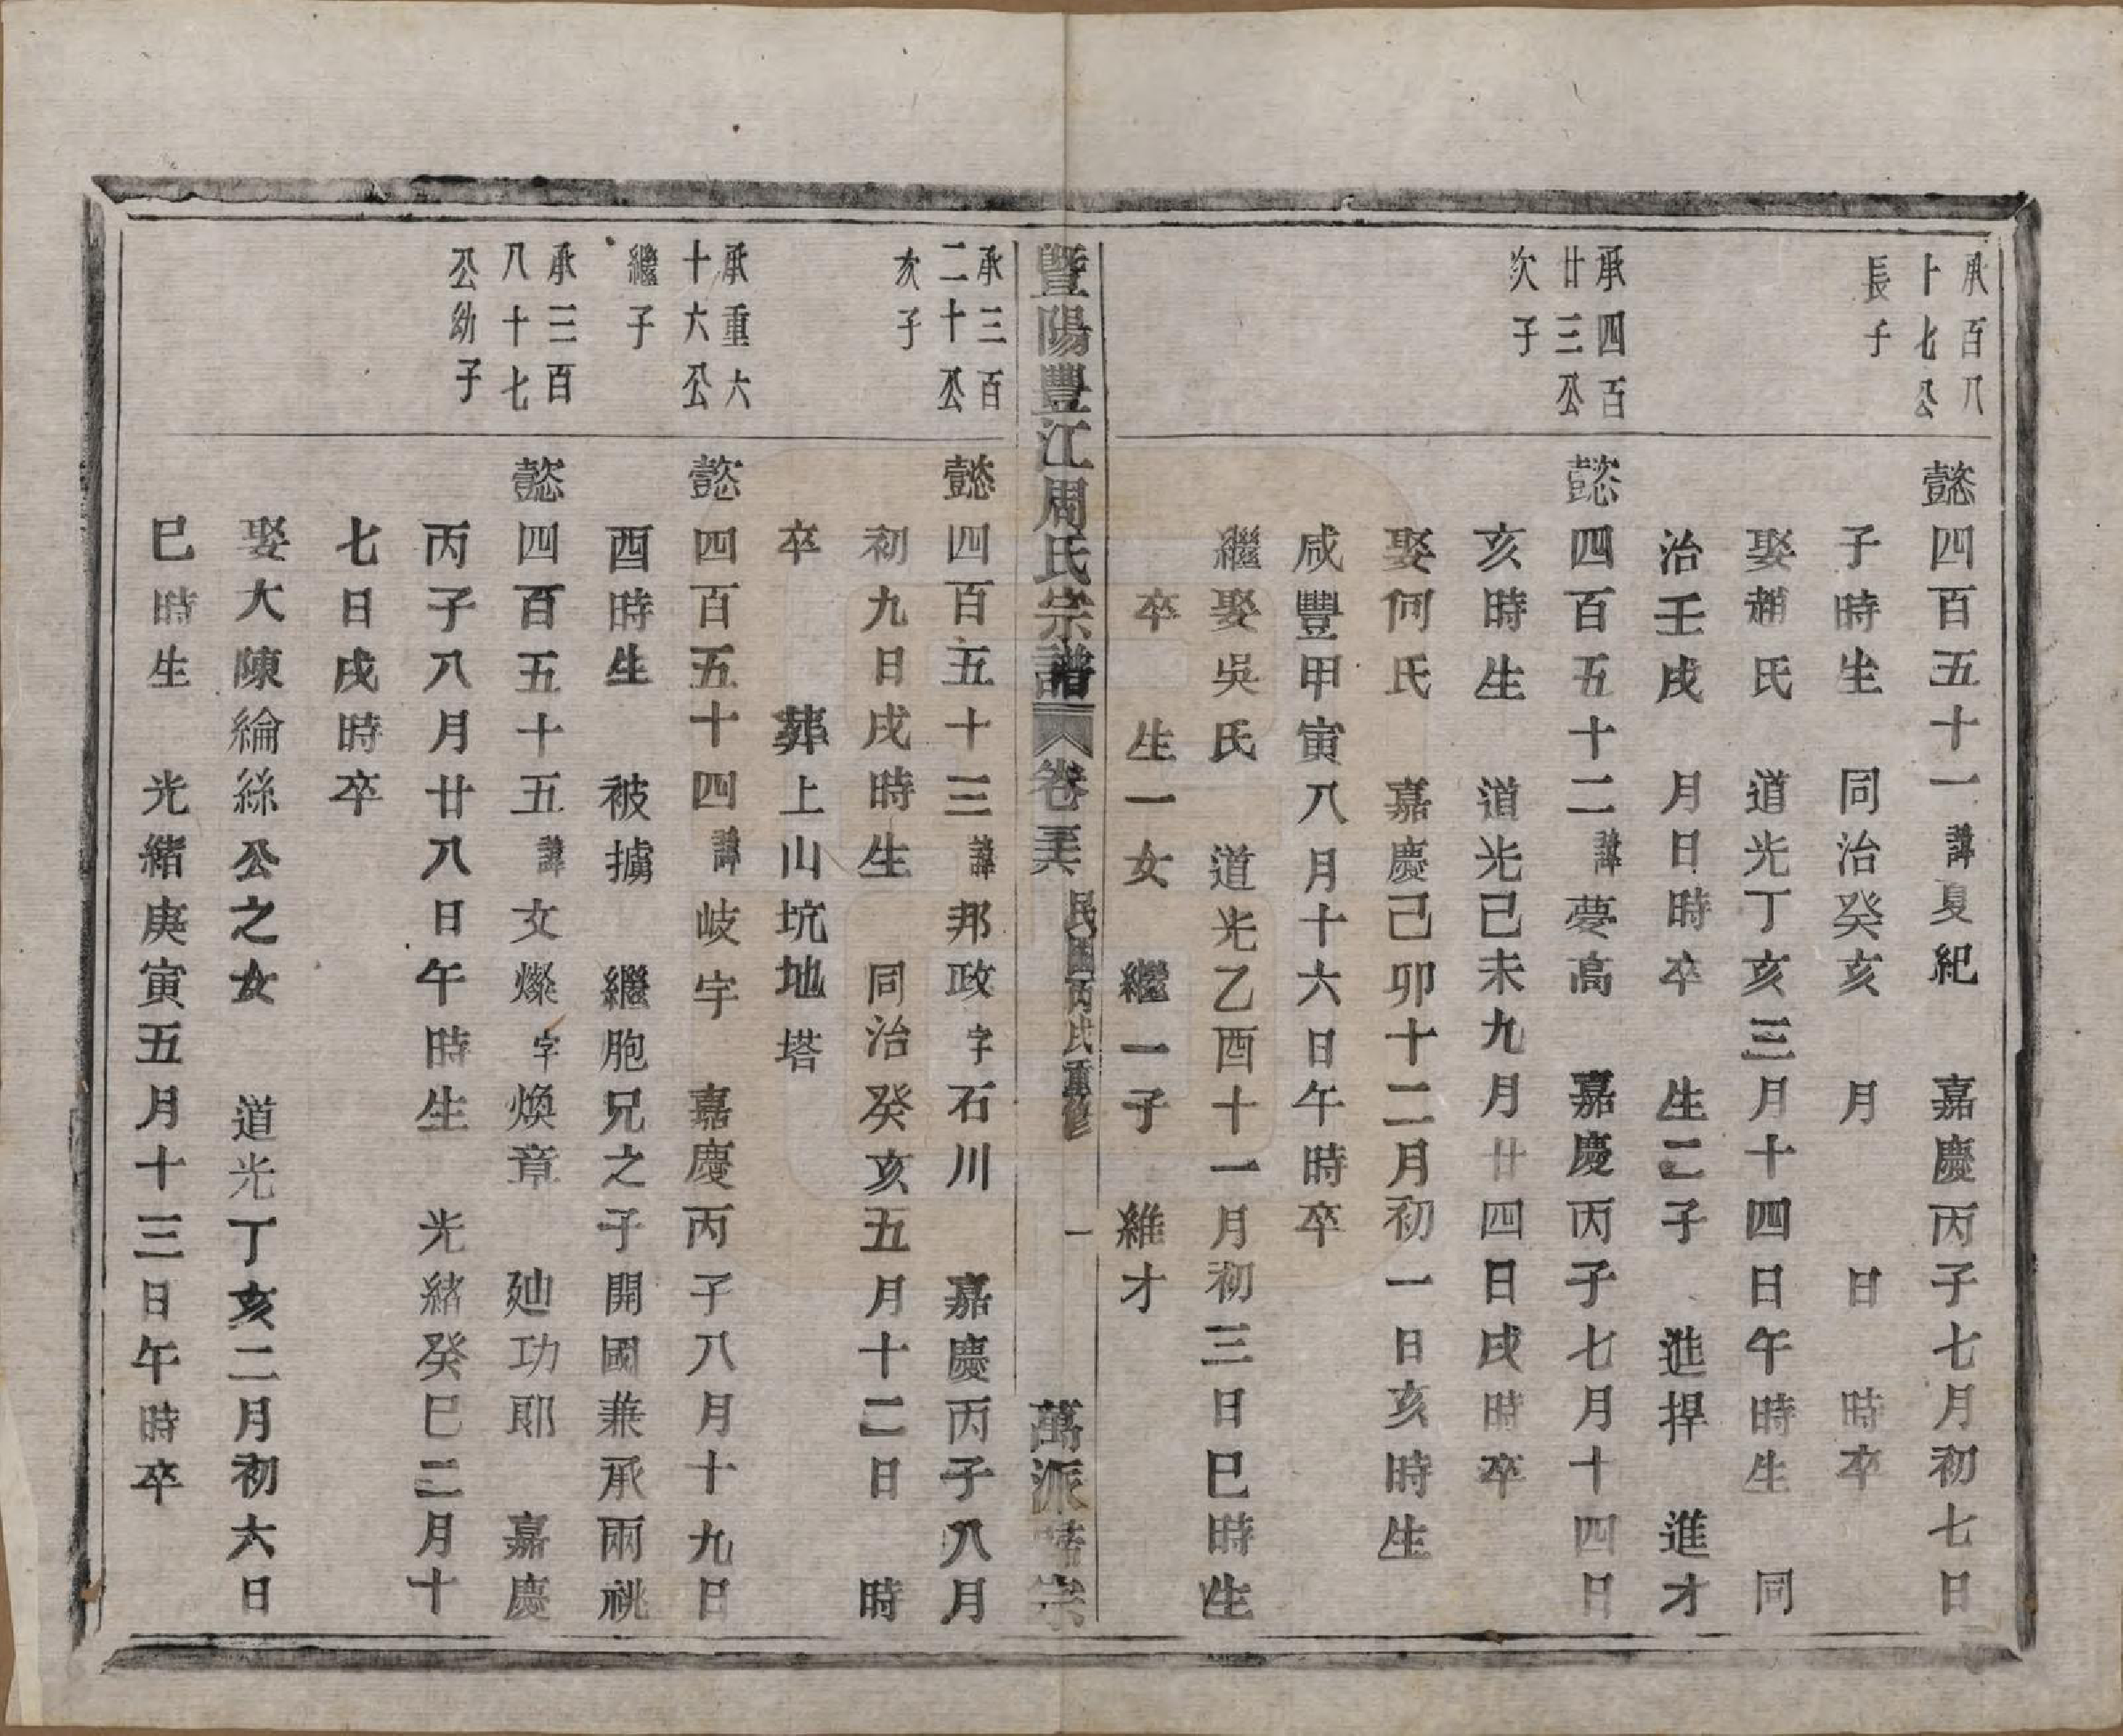 承百八
十七公
長子
懿四百五十一諱夏紀　嘉慶丙子七月初七日
子時生　同治癸亥　月　　日　時卒
娶趙氏　道光丁亥三月十四日午時生　同
治壬戌　月日時卒　生二子　進捍　進才
承四百
廿三公
次子
懿四百五十二諱夢高　嘉慶丙子七月十四日
亥時生　道光己未九月廿四日戌時卒
娶何氏　嘉慶己卯十二月初一日亥時生
咸豐甲寅八月十六日午時卒
繼娶吳氏　道光乙酉十一月初三日巳時生
卒　生一女　繼一子　維才
暨陽豐江周氏宗譜　卷　民國丙戌重修　一　萬派　宗
承三百
二十公
次子
懿四百五十三諱邦政字石川　嘉慶丙子八月
初九日戌時生　同治癸亥五月十二日　時
卒　　葬上山坑地塔
承重六
十六公
繼子
懿四百五十四諱岐字　嘉慶丙子八月十九日
酉時生　被擄　繼胞兄之子開國兼承兩祧
承三百
八十七
公幼子
懿四百五十五諱文燦字煥章　廸功郎　嘉慶
丙子八月廿八日午時生　光緒癸巳二月十
七日戌時卒
娶大陳綸絲公之女　道光丁亥二月初六日
巳時生　光緒庚寅五月十三日午時卒